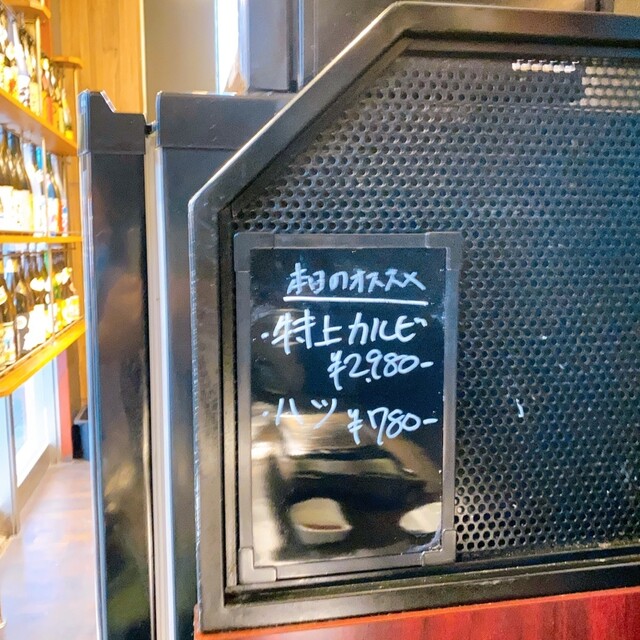 本日のオススメ
・特上カルビ
¥2,980-
・ハツ ¥780-